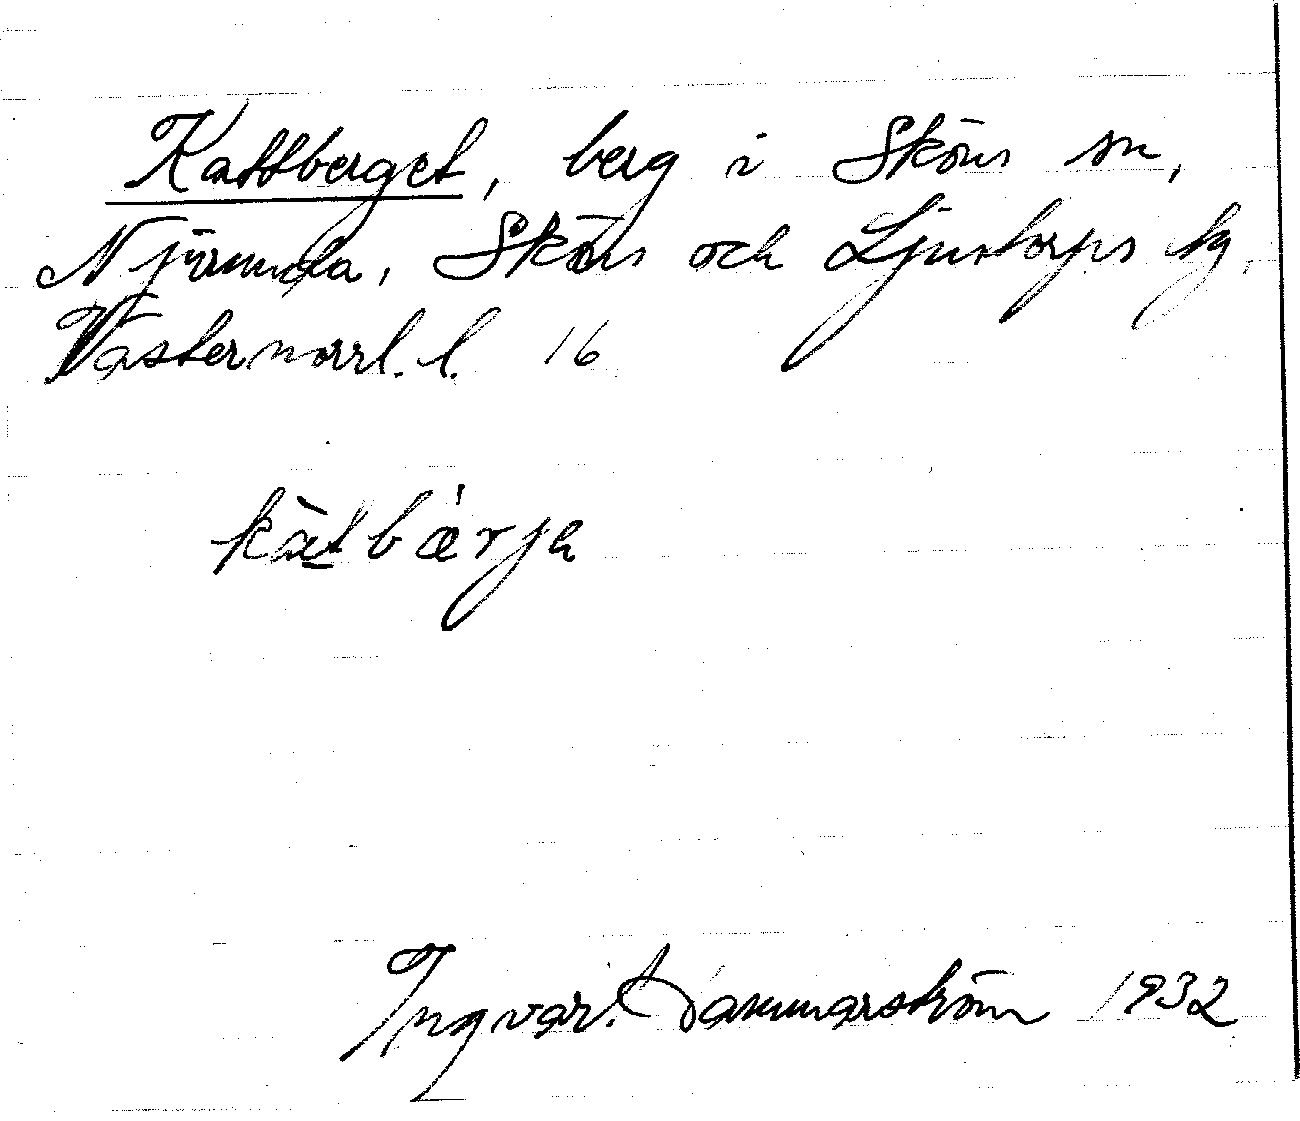 Kattberget, berg i Sköns sn,
Njurunda, Sköns och Ljustorps tg,
Västernorrl. l. 16
kàtbærja
Ingvar Hammarström 1932